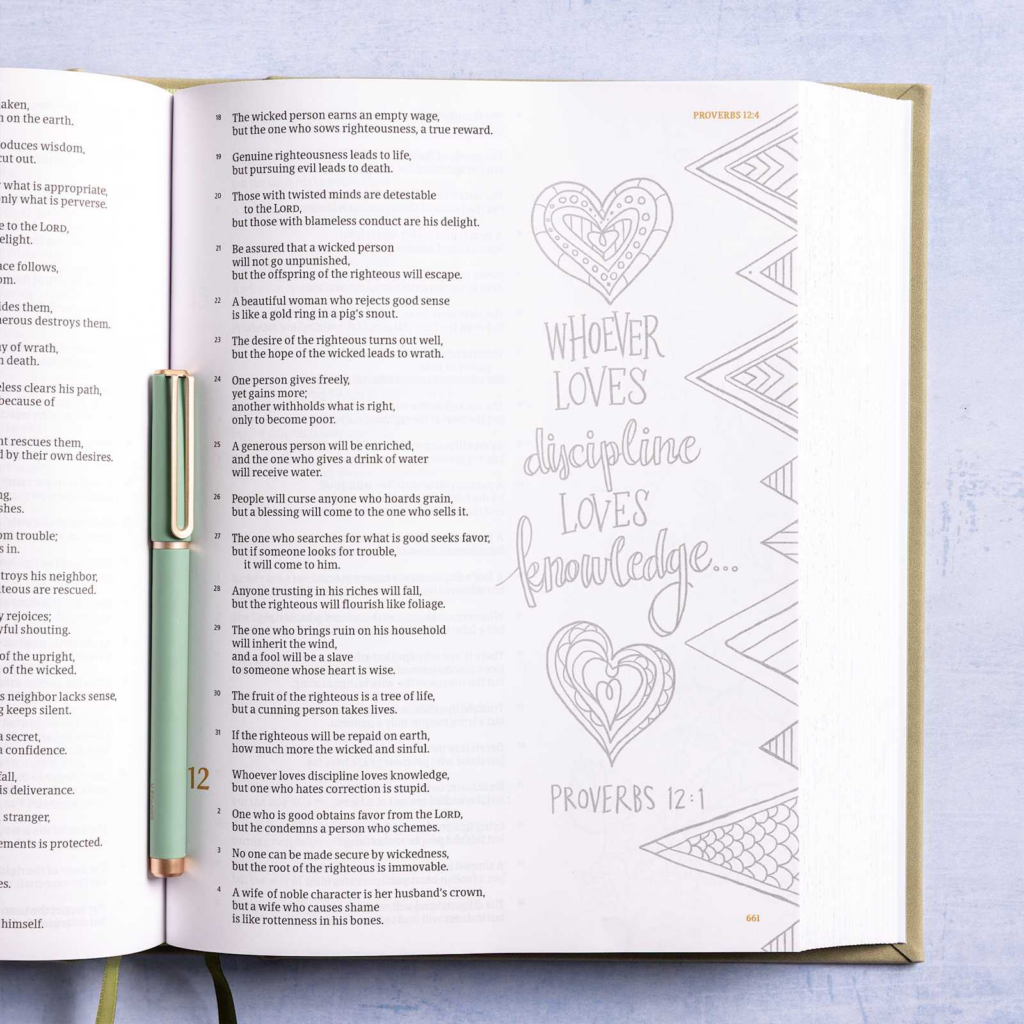 aken,
on the earth.
oduces wisdom,
cut out.
what is appropriate,
only what is perverse.
e to the LORD,
elight.
ace follows,
om.
ides them,
herous destroys them.
ay of wrath,
death.
eless clears his path,
because of
nt rescues them,
d by their own desires.
ng,
shes.
om trouble;
s in.
troys his neighbor,
teous are rescued.
y rejoices;
yful shouting.
of the upright,
of the wicked.
s neighbor lacks sense,
g keeps silent.
a secret,
a confidence.
fall,
is deliverance.
stranger,
ements is protected.
es.
himself.
PROVERBS 12:4
18 The wicked person earns an empty wage,
but the one who sows righteousness, a true reward.
19 Genuine righteousness leads to life,
but pursuing evil leads to death.
20 Those with twisted minds are detestable
to the LORD,
but those with blameless conduct are his delight.
21 Be assured that a wicked person
will not go unpunished,
but the offspring of the righteous will escape.
22 A beautiful woman who rejects good sense
is like a gold ring in a pig's snout.
23 The desire of the righteous turns out well,
but the hope of the wicked leads to wrath.
24 One person gives freely,
yet gains more;
another withholds what is right,
only to become poor.
25 A generous person will be enriched,
and the one who gives a drink of water
will receive water.
26 People will curse anyone who hoards grain,
but a blessing will come to the one who sells it.
27 The one who searches for what is good seeks favor,
but if someone looks for trouble,
it will come to him.
28 Anyone trusting in his riches will fall,
but the righteous will flourish like foliage.
29 The one who brings ruin on his household
will inherit the wind,
and a fool will be a slave
to someone whose heart is wise.
30 The fruit of the righteous is a tree of life,
but a cunning person takes lives.
31 If the righteous will be repaid on earth,
how much more the wicked and sinful.
12 Whoever loves discipline loves knowledge,
but one who hates correction is stupid.
2 One who is good obtains favor from the LORD,
but he condemns a person who schemes.
3 No one can be made secure by wickedness,
but the root of the righteous is immovable.
4 A wife of noble character is her husband's crown,
but a wife who causes shame
is like rottenness in his bones.
WHOEVER
LOVES
discipline
LOVES
knowledge...
PROVERBS 12:1
661